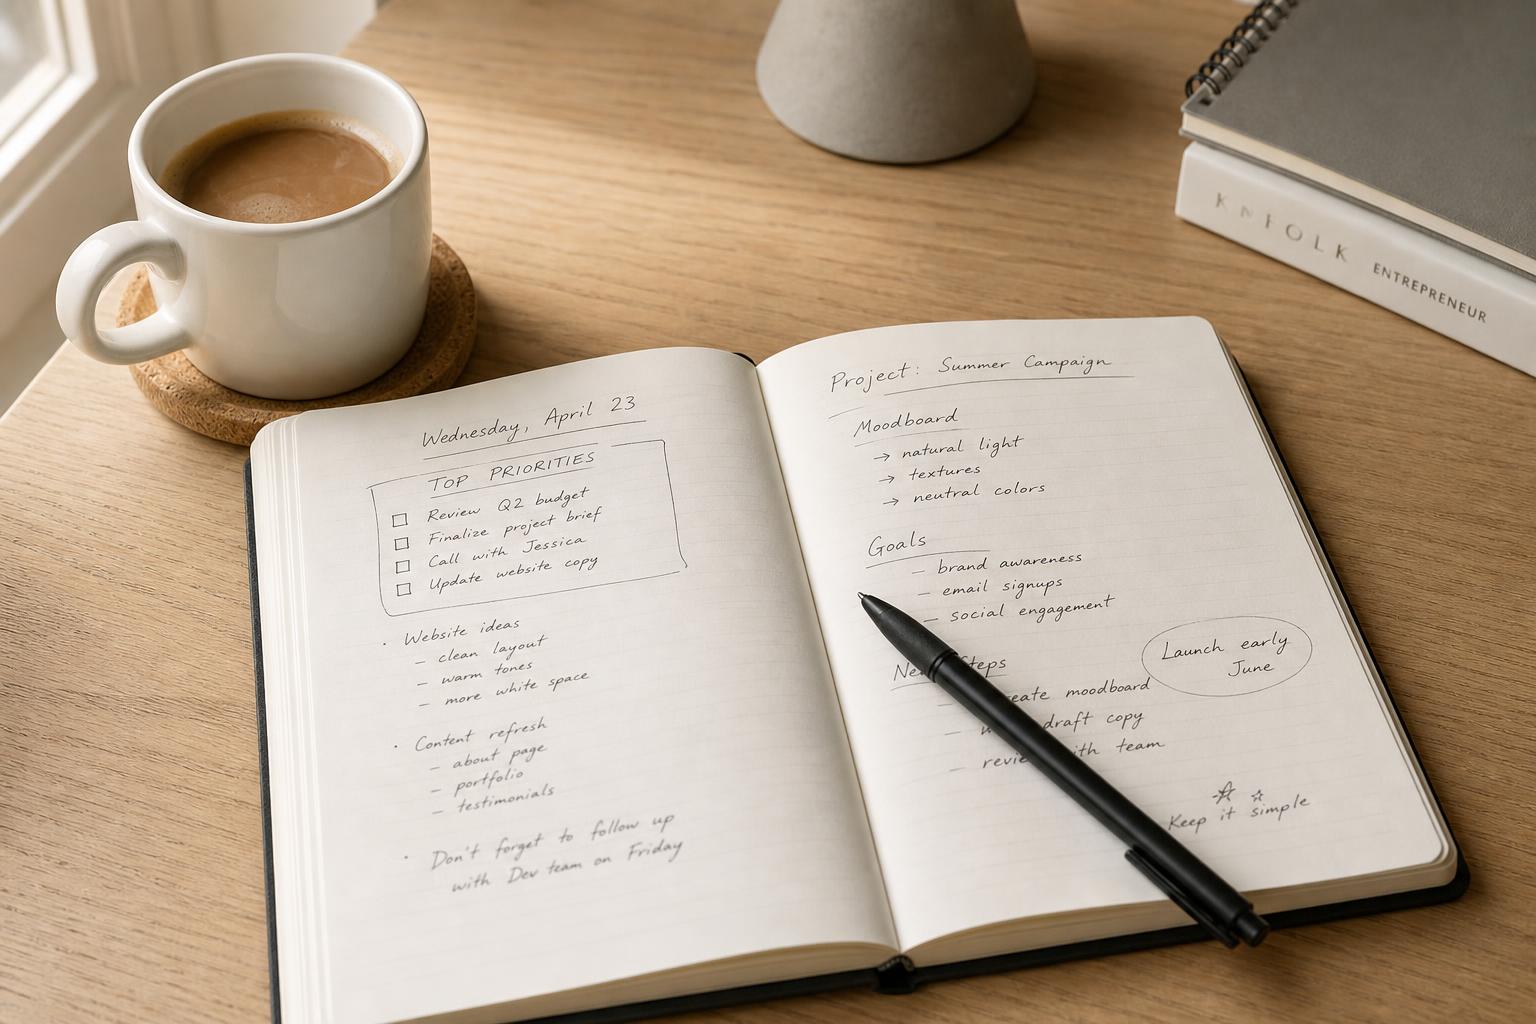 Wednesday, April 23
TOP PRIORITIES
Review Q2 budget
Finalize project brief
Call with Jessica
Update website copy
· Website ideas
– clean layout
– warm tones
– more white space
· Content refresh
– about page
– portfolio
– testimonials
· Don't forget to follow up
with Dev team on Friday
Project: Summer Campaign
Moodboard
→ natural light
→ textures
→ neutral colors
Goals
– brand awareness
– email signups
– social engagement
Steps
moodboard
draft copy
with team
Launch early
June
Keep it simple
ENTREPRENEUR